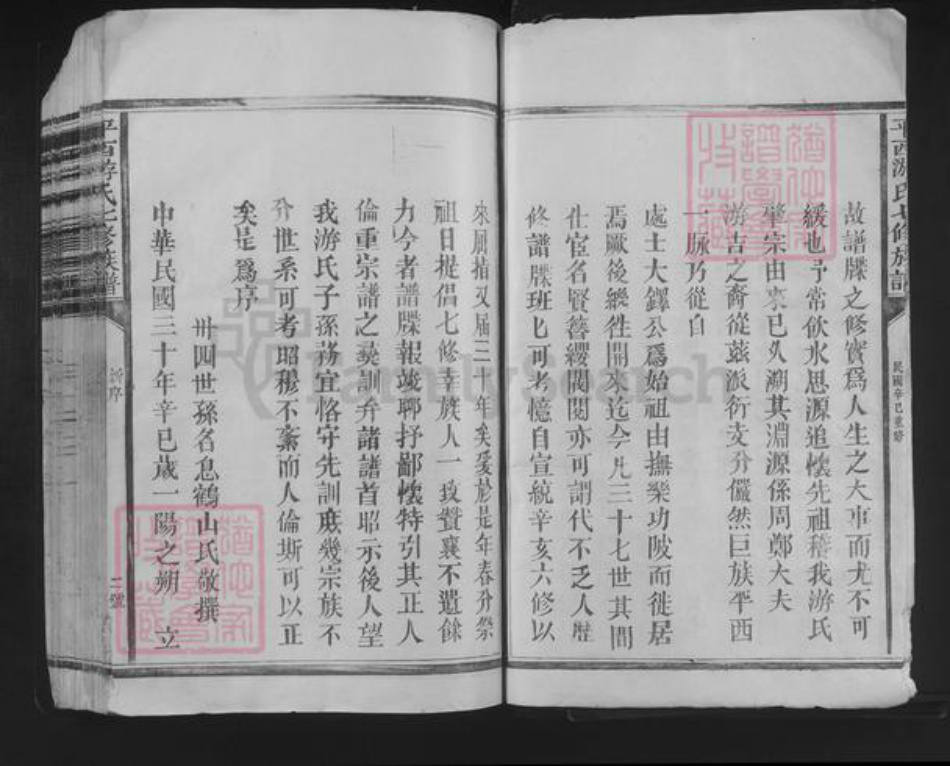 平西游氏七修族譜
民國辛巳重修
故譜牒之修實爲人生之大事而尤不可
緩也予常飲水思源追懷先祖稽我游氏
肇宗由來已久溯其淵源係周鄭大夫
游吉之裔從茲派衍支分儼然巨族平西
一脈乃從自
處士大鐸公爲始祖由撫樂功陂而徙居
焉厥後繼徃開來迄今凡三十七世其間
仕宦名賢簪纓閥閱亦可謂代不乏人歷
修譜牒班匕可考憶自宣統辛亥六修以
來風指又届三十年矣爰於是年春分祭
祖日提倡七修幸族人一致贊襄不遺餘
力今者譜牒報竣聊抒鄙懷特引其正人
倫重宗譜之彝訓弁諸譜首昭示後人望
我游氏子孫務宜恪守先訓庶幾宗族不
分世系可考昭穆不紊而人倫斯可以正
矣是爲序
卅四世孫名息鶴山氏敬撰
中華民國三十年辛巳歲一陽之朔 立
平西游氏七修族譜
新序
二號
FamilySearch